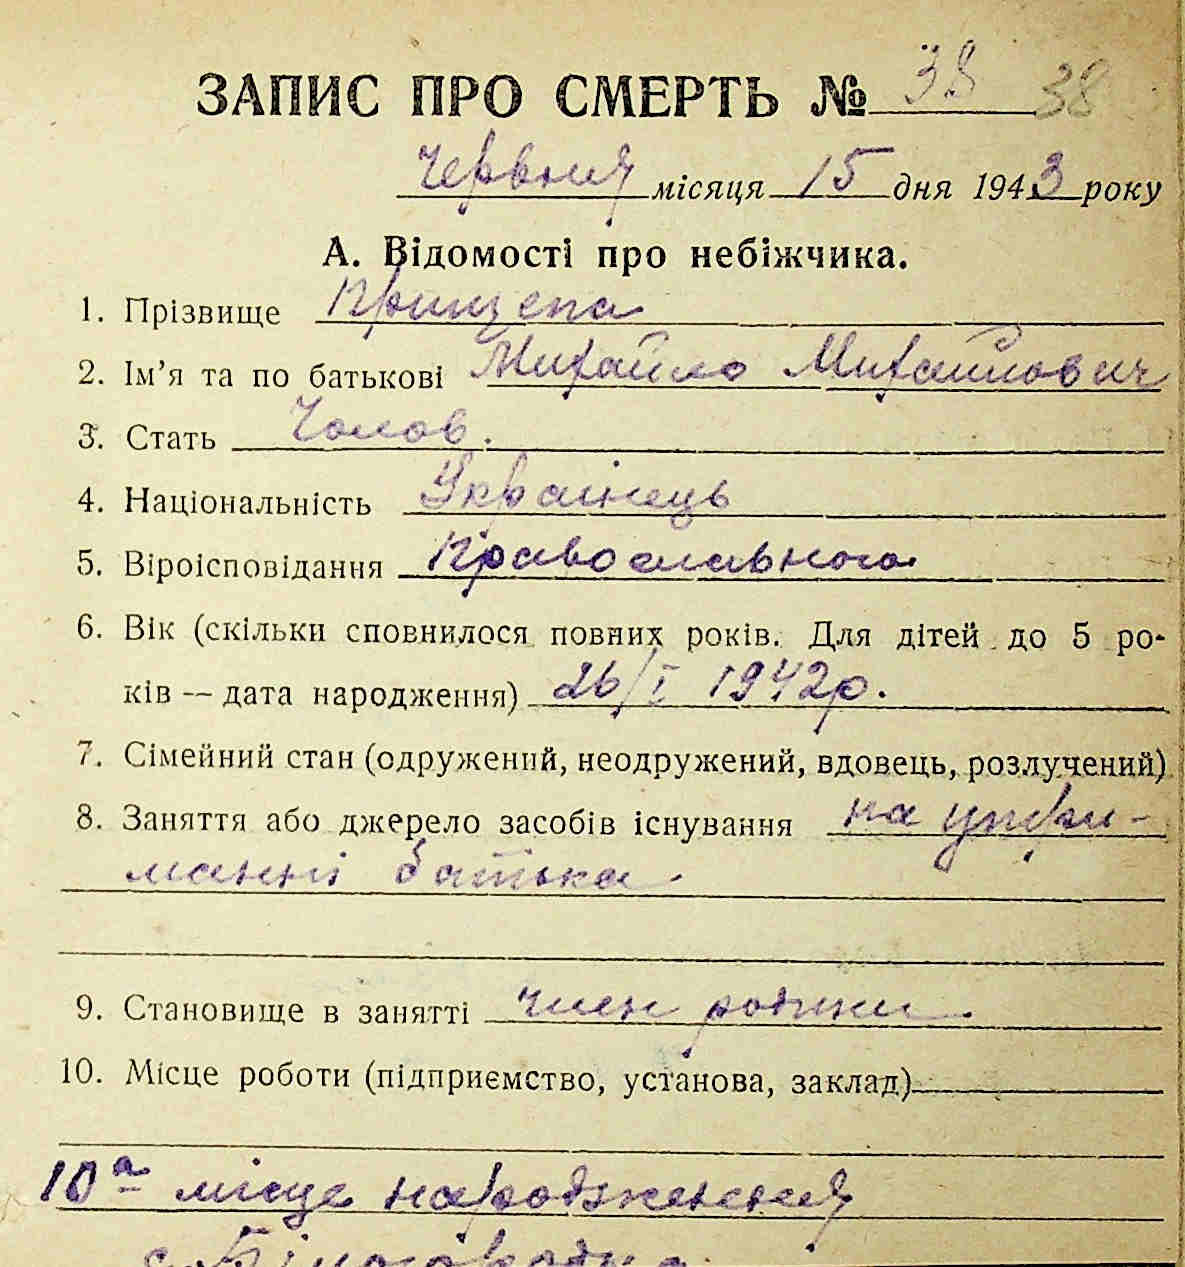 ЗАПИС ПРО СМЕРТЬ № 38 38
Червня місяця 15 дня 1943 року
А. Відомості про небіжчика.
1. Прізвище Прищепа
2. Ім’я та по батькові Михайло Михайлович
3. Стать Чолов.
4. Національність Українець
5. Віроісповідання Православного
6. Вік (скільки сповнилося повних років. Для дітей до 5 ро-
ків — дата народження) 26/I 1942р.
7. Сімейний стан (одружений, неодружений, вдовець, розлучений)
8. Заняття або джерело засобів існування на утри-
манні батька.
9. Становище в занятті член родини.
10. Місце роботи (підприємство, установа, заклад)
10а місце народження